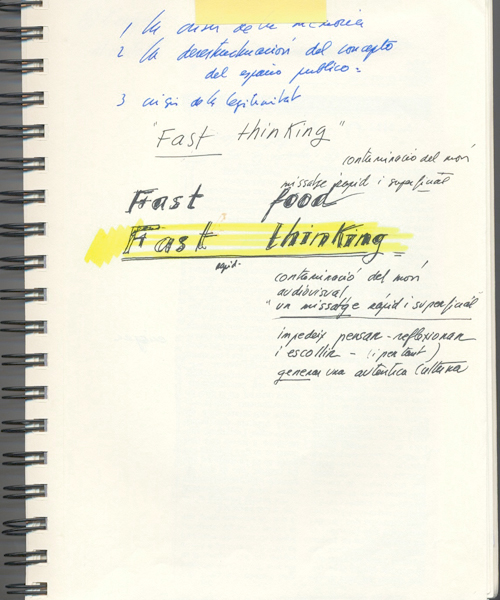 1 la crisi de la memòria
2 la desestructuración del concepto
del espacio publico =
3 crisis de la legitimitat
"Fast thinking"
contaminació del món
missatge ràpid i superficial
Fast food
Fast thinking =
ràpid.
contaminació del món
audiovisual
"un missatge ràpid i superficial"
impedeix pensar - reflexionar
i escollir - (i per tant)
generar una autèntica cultura